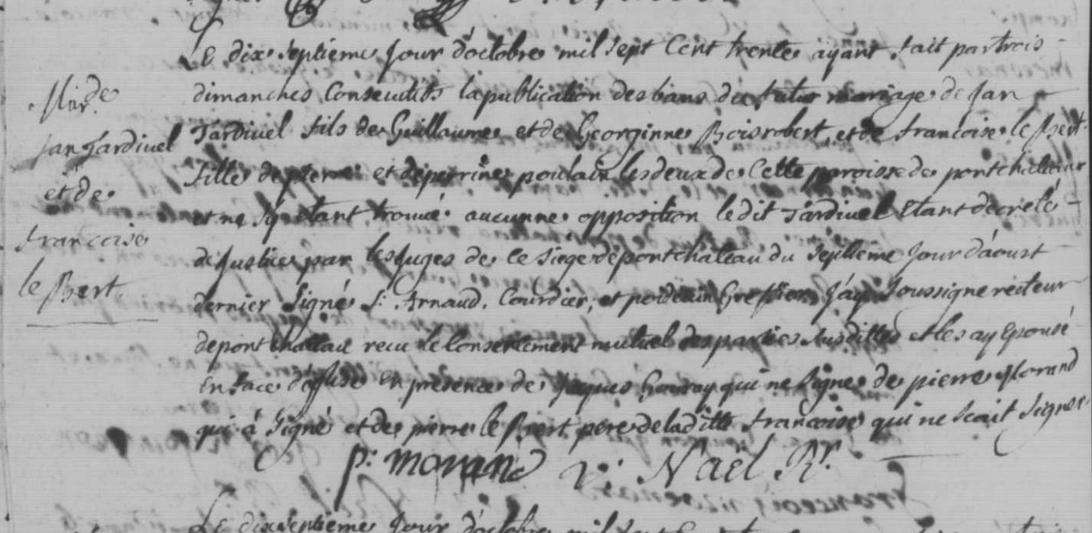 Mar. de
Jan Tardivel
et de
francoise
le Bert
Le dix septieme Jour d'octobre mil sept Cent trente ayant fait par trois
dimanches Consecutifs la publication des bans du futur mariage de Jan
Tardivel fils de Guillaume et de Georginne Boisrobert, et de francoise le Bert
fille de pierre et de perrine poulain les deux de Cette paroisse de pontchateau
et ne s'y etant trouvé aucunne opposition le dit Tardivel Etant decrelé
de Justice par les Juges de ce siege de pontchateau du septieme Jour d'aoust
dernier Signé Arnaud, Courdier, et Greffier, J'ay soussigné recteur
de pontchateau recu le Consentement mutuel des parties Susdittes et les ay Epousé
En face d'Eglise En presence de Jaques qui ne Signe de pierre Morand
qui à Signé et de pierre le Bert pere de laditte francoise qui ne scait Signer
p: morand V: Naël Rr.
Le dixseptieme Jour d'octobre mil sept Cent